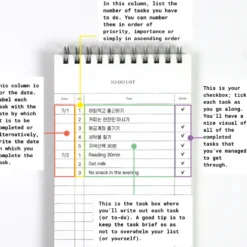 In this column, list the
number of tasks you have
to do. You can number
then in order of
priority, importance or
simply in ascending order
This column is
for the date.
Label each
task with the
date by which
it is to be
completed or
alternatively,
write the date
on which you
complete the
task.
TO-DO LIST
7/1
1
아침먹고 출근하기
✓
2
커피는 천천히 마시기
✓
3
✓
4
✓
5
지석산책 30분
✓
7/2
1
Reading 30min
✓
2
Get milk
✓
3
No snack in the evening
✓
This is your
checkbox; tick
each task as
you go along.
You'll have a
nice visual of
all of the
completed
tasks that
you've managed
to get
through.
This is the task box where
you'll write out each task
(or to-do). A good tip is to
keep the task brief so as
not to overwhelm your list
(or yourself).